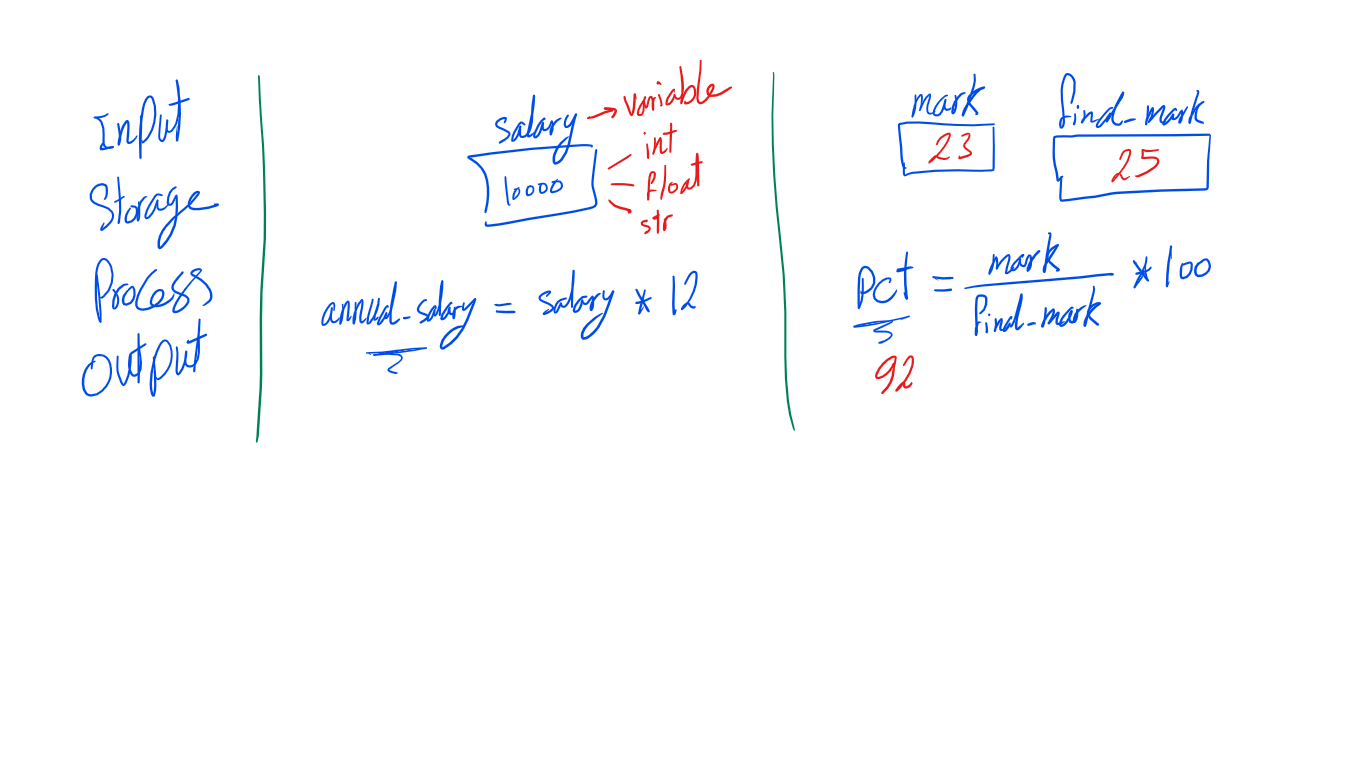 Input
Storage
Process
Output
salary → variable
10000
int
float
str
annual_salary = salary * 12
mark
23
final_mark
25
Pct = mark / final_mark * 100
92